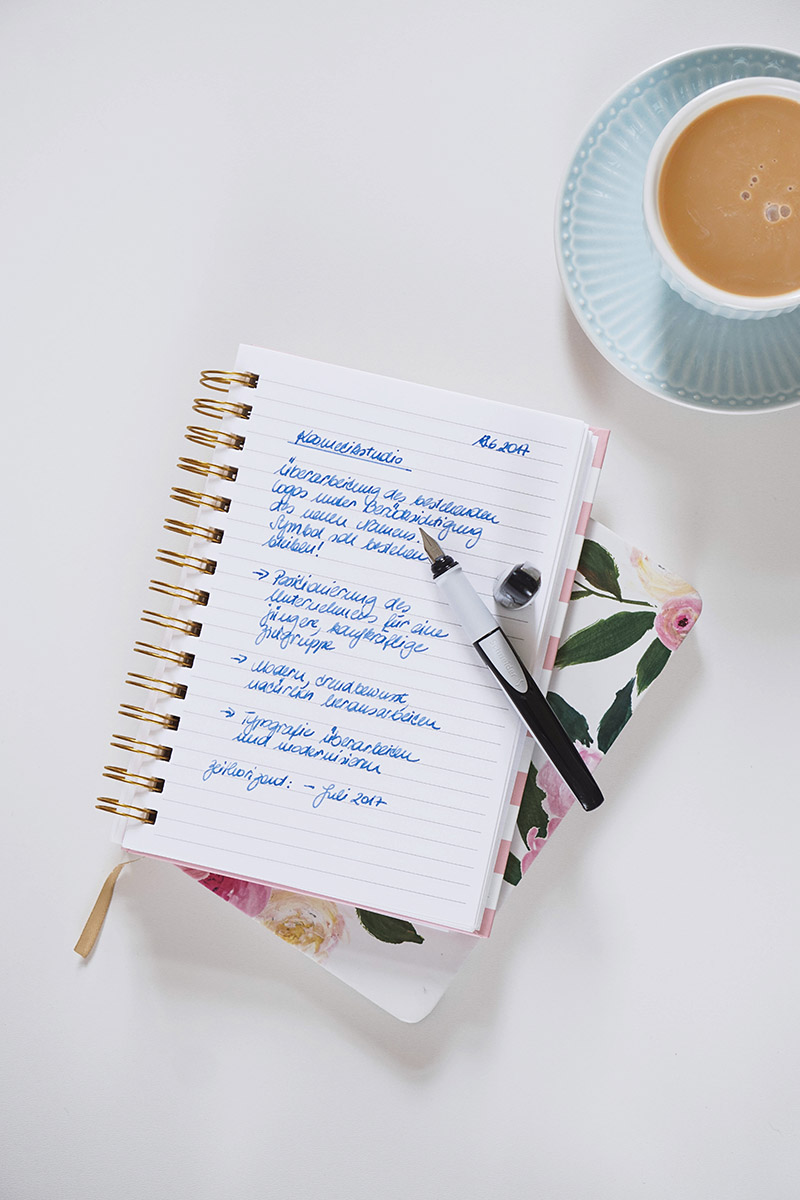 Kosmetikstudio 12.6.2017
Überarbeitung des bestehenden
Logos unter Berücksichtigung
des neuen Namens.
Symbol soll bestehen
bleiben!
→ Positionierung des
Unternehmens für eine
jüngere, kaufkräftige
Zielgruppe
→ modern, trendbewusst,
natürlich herausarbeiten
→ Typografie überarbeiten
und modernisieren
Zeithorizont: → Juli 2017